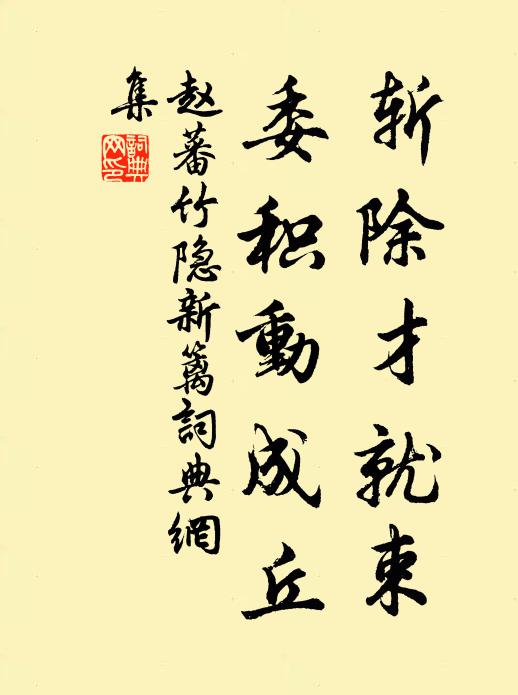 斩除才就束
委积动成丘
赵蕃竹隐新篱词典网
集
词典
网印